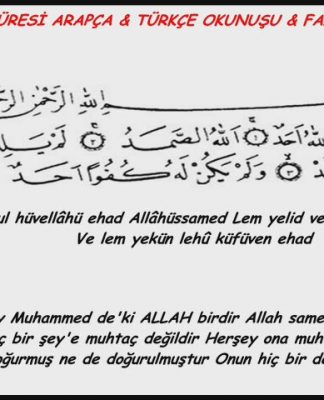 ÛRESİ ARAPÇA & TÜRKÇE OKUNUŞU & FA
اللهِ الرَّحْمٰنِ الرَّ
اللهُ اَحَدٌ ﴿١﴾ اَللهُ الصَّمَدُ ﴿٢﴾ لَمْ يَلِ
﴿٣﴾ وَلَمْ يَكُنْ لَهُ كُفُوًا اَحَدٌ
ul hüvellâhü ehad Allâhüssamed Lem yelid ve
Ve lem yekün lehû küfüven ehad
y Muhammed de'ki ALLAH birdir Allah same
ç bir şey'e muhtaç değildir Herşey ona muh
oğurmuş ne de doğurulmuştur Onun hiç bir d